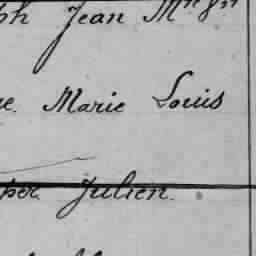 ph Jean M
e. Marie Louis
per Julien.